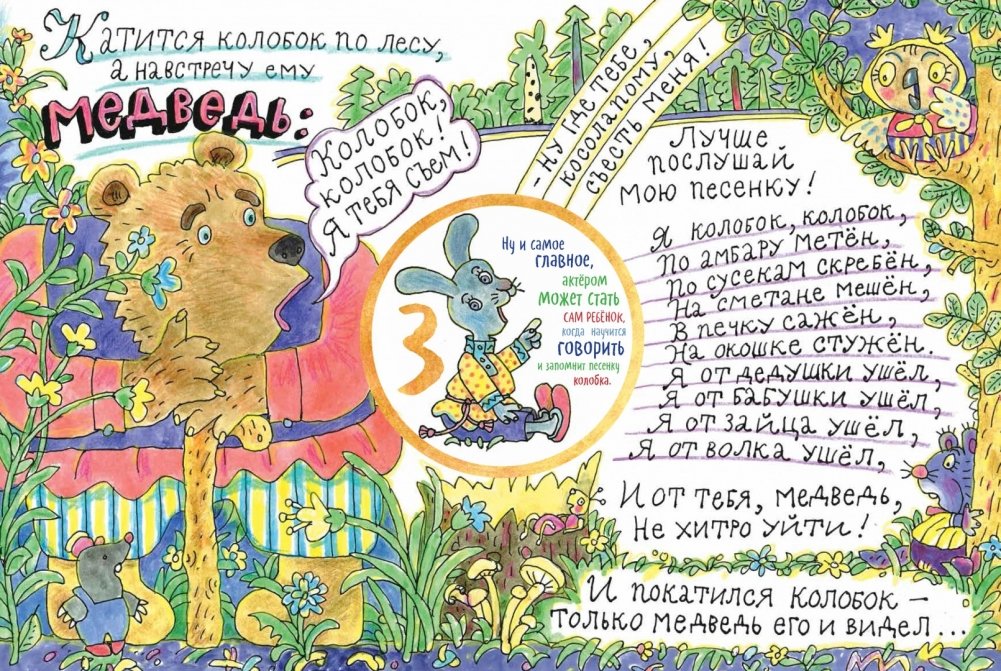 Катится колобок по лесу,
а навстречу ему
МЕДВЕДЬ:
Колобок,
колобок!
Я тебя съем!
- Ну где тебе,
косолапому,
съесть меня!
Лучше
послушай
мою песенку!
Я колобок, колобок,
По амбару метён,
По сусекам скребён,
На сметане мешён,
В печку сажён,
На окошке стужён.
Я от дедушки ушёл,
Я от бабушки ушёл,
Я от зайца ушёл,
Я от волка ушёл,
И от тебя, медведь,
Не хитро уйти!
И покатился колобок –
только медведь его и видел...
3
Ну и самое
главное,
актёром
может стать
сам ребёнок,
когда научится
говорить
и запомнит песенку
колобка.